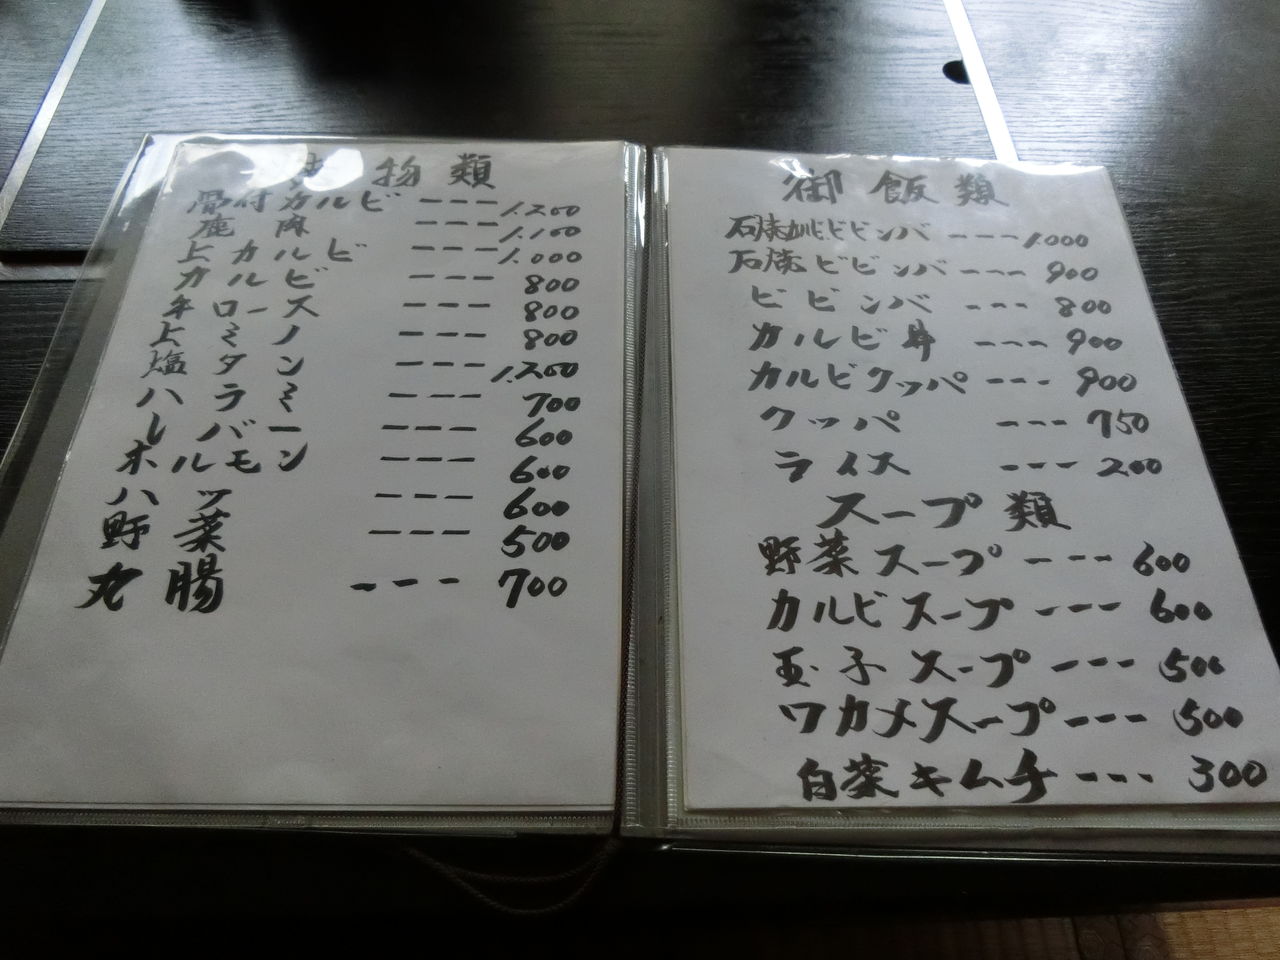 物類
骨付カルビ ---1.200
鹿肉 ---1.100
上カルビ ---1.000
カルビ ---800
牛ロース ---800
上ミノ ---800
塩タン ---1.200
ハラミ ---700
レバー ---600
ホルモン ---600
ハツ ---600
野菜 ---500
丸腸 ---700
御飯類
石焼カルビビビンバ ---1.000
石焼ビビンバ ---900
ビビンバ ---800
カルビ丼 ---900
カルビクッパ ---900
クッパ ---750
ライス ---200
スープ類
野菜スープ ---600
カルビスープ ---600
玉子スープ ---500
ワカメスープ ---500
白菜キムチ ---300